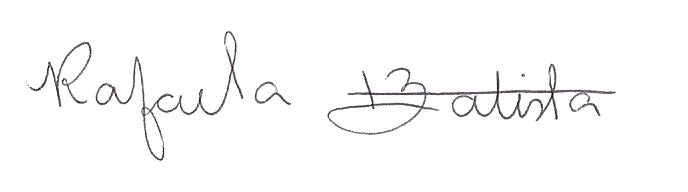 Rafaela Batista